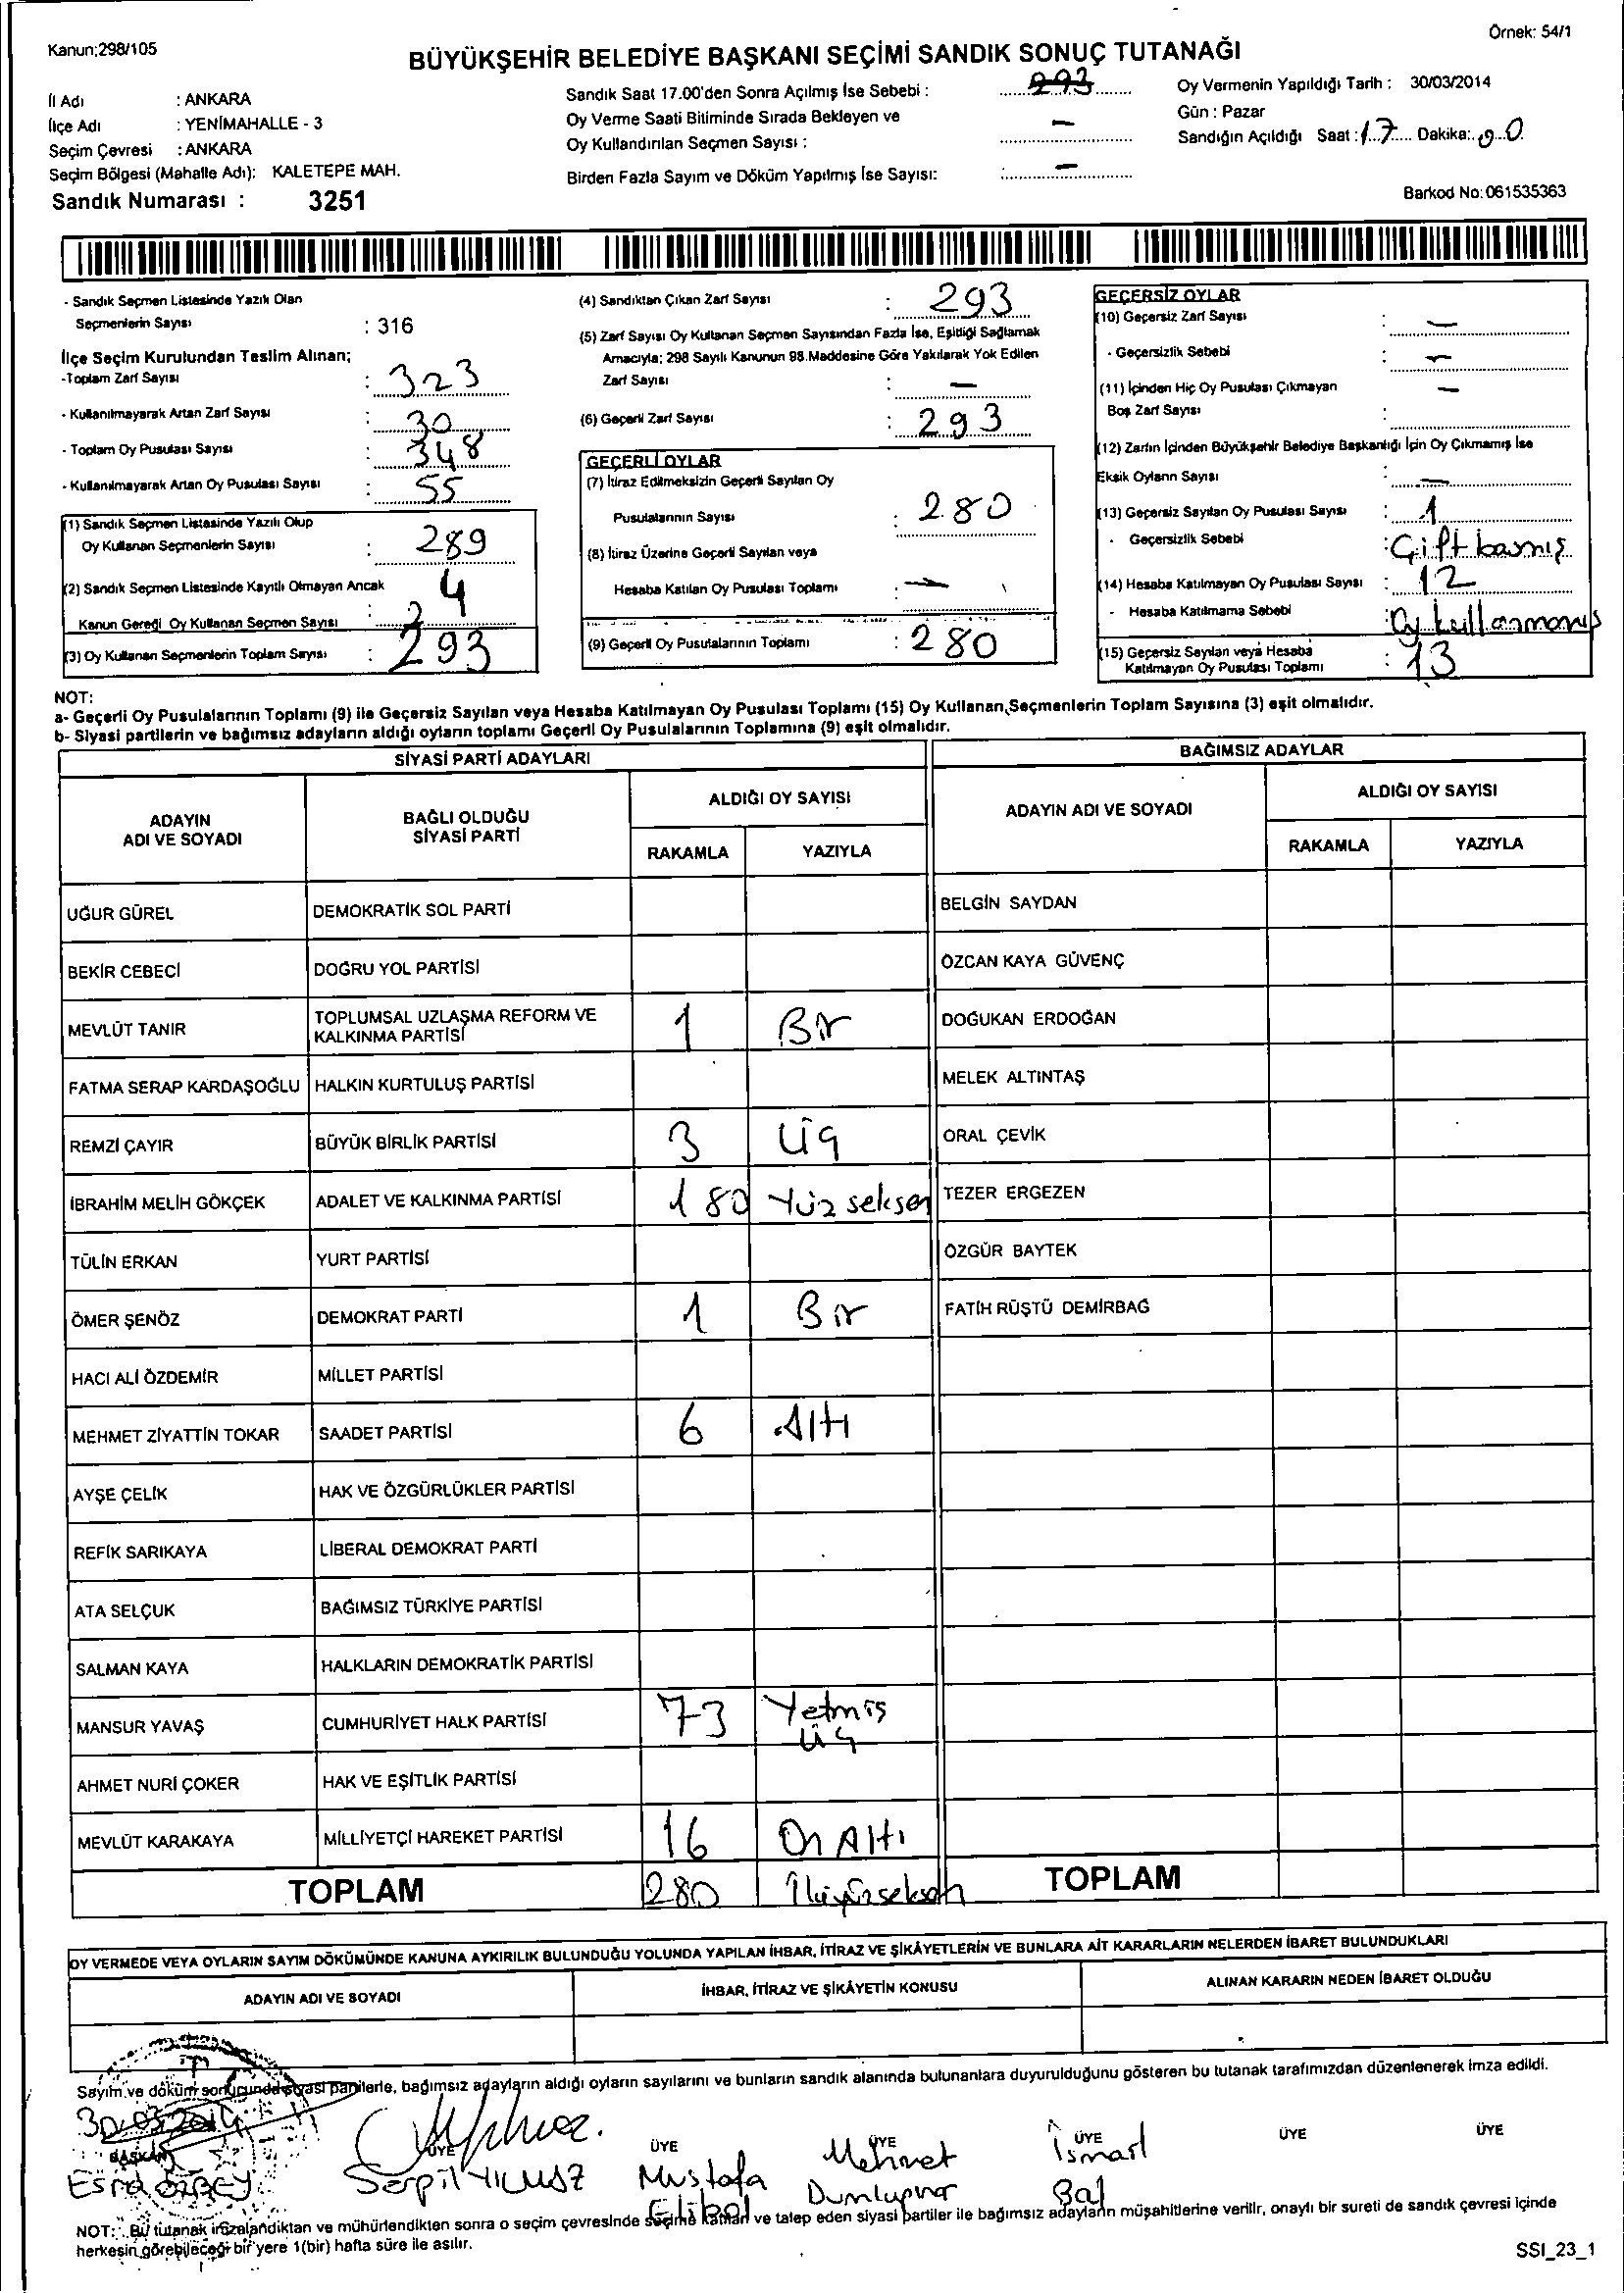 Örnek: 54/1
Kanun;298/105
BÜYÜKŞEHİR BELEDİYE BAŞKANI SEÇİMİ SANDIK SONUÇ TUTANAĞI
İl Adı : ANKARA
İlçe Adı : YENİMAHALLE - 3
Seçim Çevresi : ANKARA
Seçim Bölgesi (Mahalle Adı): KALETEPE MAH.
Sandık Numarası : 3251
Sandık Saat 17.00'den Sonra Açılmış İse Sebebi : 293
Oy Verme Saati Bitiminde Sırada Bekleyen ve
Oy Kullandırılan Seçmen Sayısı : —
Birden Fazla Sayım ve Döküm Yapılmış İse Sayısı: —
Oy Vermenin Yapıldığı Tarih : 30/03/2014
Gün : Pazar
Sandığın Açıldığı Saat : 17 Dakika: 00
Barkod No: 061535363
- Sandık Seçmen Listesinde Yazılı Olan
Seçmenlerin Sayısı : 316
İlçe Seçim Kurulundan Teslim Alınan;
-Toplam Zarf Sayısı : 323
- Kullanılmayarak Artan Zarf Sayısı : 30
- Toplam Oy Pusulası Sayısı : 348
- Kullanılmayarak Artan Oy Pusulası Sayısı : 55
(1) Sandık Seçmen Listesinde Yazılı Olup
Oy Kullanan Seçmenlerin Sayısı : 289
(2) Sandık Seçmen Listesinde Kayıtlı Olmayan Ancak
Kanun Gereği Oy Kullanan Seçmen Sayısı : 4
(3) Oy Kullanan Seçmenlerin Toplam Sayısı : 293
(4) Sandıktan Çıkan Zarf Sayısı : 293
(5) Zarf Sayısı Oy Kullanan Seçmen Sayısından Fazla İse, Eşitliği Sağlamak
Amacıyla; 298 Sayılı Kanunun 98.Maddesine Göre Yakılarak Yok Edilen
Zarf Sayısı : —
(6) Geçerli Zarf Sayısı : 293
GEÇERLİ OYLAR
(7) İtiraz Edilmeksizin Geçerli Sayılan Oy
Pusulalarının Sayısı : 280
(8) İtiraz Üzerine Geçerli Sayılan veya
Hesaba Katılan Oy Pusulası Toplamı : —
(9) Geçerli Oy Pusulalarının Toplamı : 280
GEÇERSİZ OYLAR
(10) Geçersiz Zarf Sayısı : —
- Geçersizlik Sebebi : —
(11) İçinden Hiç Oy Pusulası Çıkmayan —
Boş Zarf Sayısı :
(12) Zarfın İçinden Büyükşehir Belediye Başkanlığı İçin Oy Çıkmamış İse
Eksik Oyların Sayısı : —
(13) Geçersiz Sayılan Oy Pusulası Sayısı : 1
- Geçersizlik Sebebi : Çift basmış
(14) Hesaba Katılmayan Oy Pusulası Sayısı : 12
- Hesaba Katılmama Sebebi : Oy kullanmamış
(15) Geçersiz Sayılan veya Hesaba
Katılmayan Oy Pusulası Toplamı : 13
NOT:
a- Geçerli Oy Pusulalarının Toplamı (9) ile Geçersiz Sayılan veya Hesaba Katılmayan Oy Pusulası Toplamı (15) Oy Kullanan Seçmenlerin Toplam Sayısına (3) eşit olmalıdır.
b- Siyasi partilerin ve bağımsız adayların aldığı oyların toplamı Geçerli Oy Pusulalarının Toplamına (9) eşit olmalıdır.
SİYASİ PARTİ ADAYLARI
ADAYIN
ADI VE SOYADI
BAĞLI OLDUĞU
SİYASİ PARTİ
ALDIĞI OY SAYISI
RAKAMLA YAZIYLA
UĞUR GÜREL DEMOKRATİK SOL PARTİ
BEKİR CEBECİ DOĞRU YOL PARTİSİ
MEVLÜT TANIR TOPLUMSAL UZLAŞMA REFORM VE KALKINMA PARTİSİ 1 Bir
FATMA SERAP KARDAŞOĞLU HALKIN KURTULUŞ PARTİSİ
REMZİ ÇAYIR BÜYÜK BİRLİK PARTİSİ 3 Üç
İBRAHİM MELİH GÖKÇEK ADALET VE KALKINMA PARTİSİ 180 Yüz seksen
TÜLİN ERKAN YURT PARTİSİ
ÖMER ŞENÖZ DEMOKRAT PARTİ 1 Bir
HACI ALİ ÖZDEMİR MİLLET PARTİSİ
MEHMET ZİYATTİN TOKAR SAADET PARTİSİ 6 Altı
AYŞE ÇELİK HAK VE ÖZGÜRLÜKLER PARTİSİ
REFİK SARIKAYA LİBERAL DEMOKRAT PARTİ
ATA SELÇUK BAĞIMSIZ TÜRKİYE PARTİSİ
SALMAN KAYA HALKLARIN DEMOKRATİK PARTİSİ
MANSUR YAVAŞ CUMHURİYET HALK PARTİSİ 73 Yetmiş Üç
AHMET NURİ ÇOKER HAK VE EŞİTLİK PARTİSİ
MEVLÜT KARAKAYA MİLLİYETÇİ HAREKET PARTİSİ 16 On Altı
TOPLAM 280 İkiyüzseksen
BAĞIMSIZ ADAYLAR
ADAYIN ADI VE SOYADI
ALDIĞI OY SAYISI
RAKAMLA YAZIYLA
BELGİN SAYDAN
ÖZCAN KAYA GÜVENÇ
DOĞUKAN ERDOĞAN
MELEK ALTINTAŞ
ORAL ÇEVİK
TEZER ERGEZEN
ÖZGÜR BAYTEK
FATİH RÜŞTÜ DEMİRBAĞ
TOPLAM
OY VERMEDE VEYA OYLARIN SAYIM DÖKÜMÜNDE KANUNA AYKIRILIK BULUNDUĞU YOLUNDA YAPILAN İHBAR, İTİRAZ VE ŞİKÂYETLERİN VE BUNLARA AİT KARARLARIN NELERDEN İBARET BULUNDUKLARI
ADAYIN ADI VE SOYADI
İHBAR, İTİRAZ VE ŞİKÂYETİN KONUSU
ALINAN KARARIN NEDEN İBARET OLDUĞU
Sayım ve döküm sonucunda siyasi partilerle, bağımsız adayların aldığı oyların sayılarını ve bunların sandık alanında bulunanlara duyurulduğunu gösteren bu tutanak tarafımızdan düzenlenerek imza edildi.
30.03.2014
BAŞKAN ÜYE ÜYE ÜYE ÜYE ÜYE ÜYE
Esra Serpil YILMAZ Mustafa Elibol Mehmet Dumlupınar İsmail Bal
NOT: Bu tutanak imzalandıktan ve mühürlendikten sonra o seçim çevresinde seçime katılan ve talep eden siyasi partiler ile bağımsız adayların müşahitlerine verilir, onaylı bir sureti de sandık çevresi içinde
herkesin görebileceği bir yere 1(bir) hafta süre ile asılır.
SSI_23_1